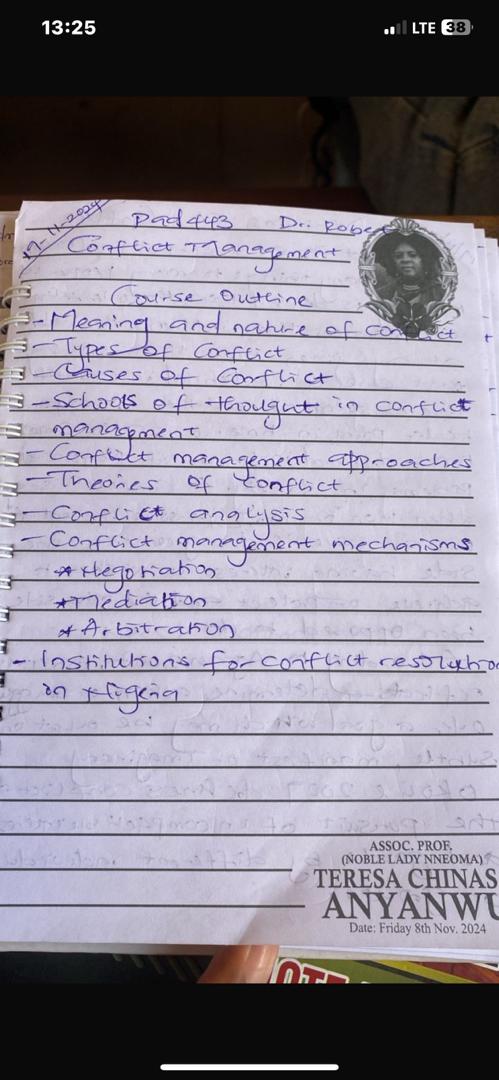 13:25
LTE 38
17-11-2024
Pad 443 Dr. Robert
Conflict Management
Course Outline
- Meaning and nature of conflict
- Types of Conflict
- Causes of Conflict
- Schools of thought in conflict
management
- Conflict management approaches
- Theories of Conflict
- Conflict analysis
- Conflict management mechanisms
* Negotiation
* Mediation
* Arbitration
- Institutions for conflict resolution
in Nigeria
ASSOC. PROF.
(NOBLE LADY NNEOMA)
TERESA CHINAS
ANYANWU
Date: Friday 8th Nov. 2024